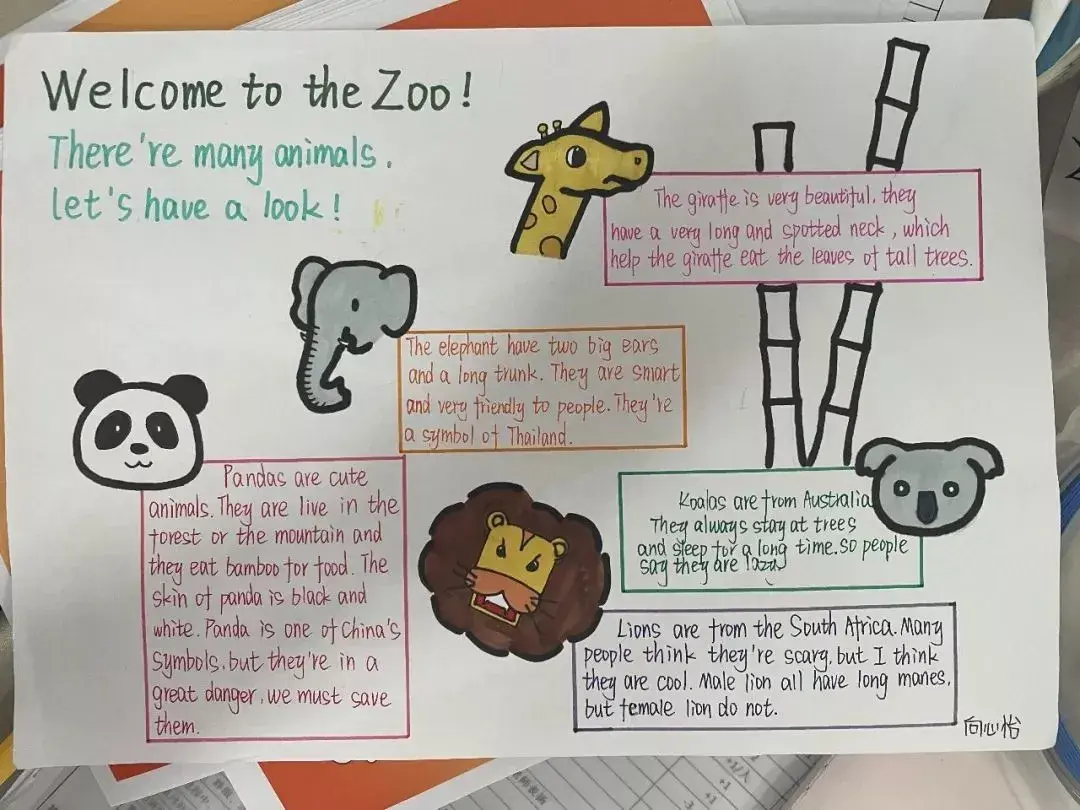 Welcome to the Zoo!
There're many animals.
let's have a look!
The giraffe is very beautiful. they
have a very long and spotted neck, which
help the giraffe eat the leaves of tall trees.
The elephant have two big ears
and a long trunk. They are smart
and very friendly to people. They're
a symbol of Thailand.
Pandas are cute
animals. They are live in the
forest or the mountain and
they eat bamboo for food. The
skin of panda is black and
white. Panda is one of China's
symbols. but they're in a
great danger. we must save
them.
Koalas are from Australia
They always stay at trees
and sleep for a long time. so people
say they are lazy
Lions are from the South Africa. Many
people think they're scary. but I think
they are cool. Male lion all have long manes.
but female lion do not.
向心怡
+1/人
+1
+1